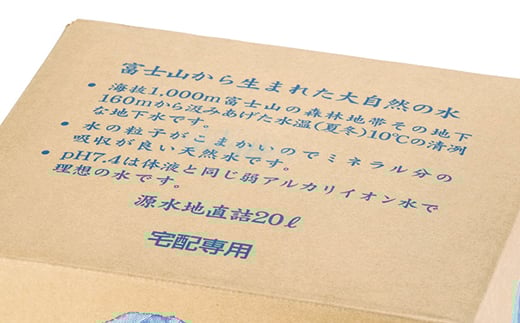 富士山から生まれた大自然の水
• 海抜1,000m富士山の森林地帯その地下
160mから汲みあげた水温(夏冬)10℃の清冽
な地下水です。
• 水の粒子がこまかいのでミネラル分の
吸収が良い天然水です。
• pH7.4は体液と同じ弱アルカリイオン水で
理想の水です。
源水地直詰20ℓ
宅配専用